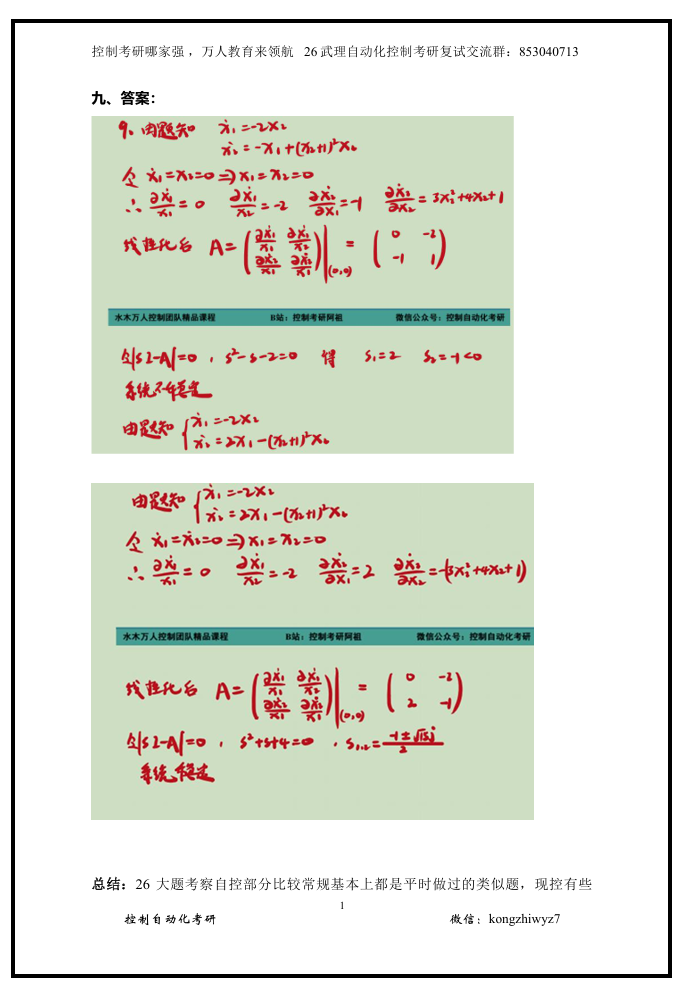 控制考研哪家强，万人教育来领航 26 武理自动化控制考研复试交流群：853040713
九、答案：
9、由题知 ẋ₁=-2x₂
ẋ₂=-x₁+(x₂+1)²x₂
令 ẋ₁=ẋ₂=0⇒x₁=x₂=0
∴ ∂ẋ₁/x₁=0 ∂ẋ₁/x₂=-2 ∂ẋ₂/∂x₁=-1 ∂ẋ₂/∂x₂=3x₂²+4x₂+1
线性化后 A=(∂ẋ₁/x₁ ∂ẋ₁/x₂ ; ∂ẋ₂/x₁ ∂ẋ₂/x₁)|(0,0) = (0 -2 ; -1 1)
水木万人控制团队精品课程 B站：控制考研阿祖 微信公众号：控制自动化考研
则|sI-A|=0，s²-s-2=0 得 s₁=2 s₂=-1<0
系统不稳定
由题知 {ẋ₁=-2x₂
ẋ₂=2x₁-(x₂+1)²x₂
由题知 {ẋ₁=-2x₂
ẋ₂=2x₁-(x₂+1)²x₂
令 ẋ₁=ẋ₂=0⇒x₁=x₂=0
∴ ∂ẋ₁/x₁=0 ∂ẋ₁/x₂=-2 ∂ẋ₂/∂x₁=2 ∂ẋ₂/∂x₂=-(3x₂²+4x₂+1)
水木万人控制团队精品课程 B站：控制考研阿祖 微信公众号：控制自动化考研
线性化后 A=(∂ẋ₁/x₁ ∂ẋ₁/x₂ ; ∂ẋ₂/x₁ ∂ẋ₂/x₁)|(0,0) = (0 -2 ; 2 -1)
则|sI-A|=0，s²+s+4=0，s₁,₂=(-1±√15j)/2
系统稳定
总结：26 大题考察自控部分比较常规基本上都是平时做过的类似题，现控有些
1
控制自动化考研 微信：kongzhiwyz7